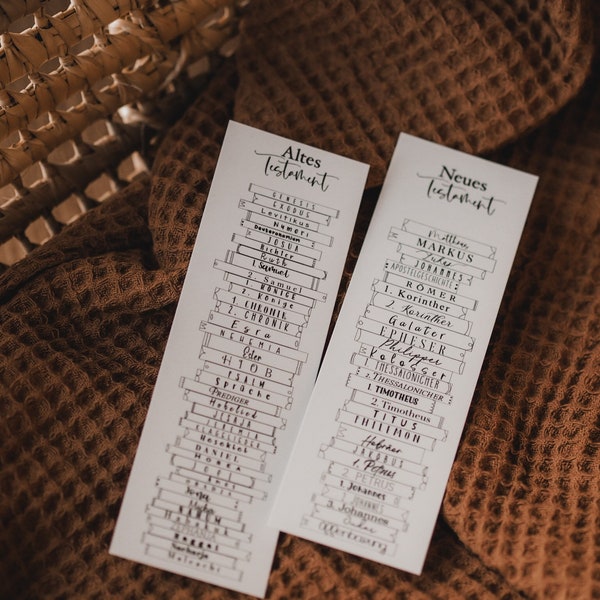 Altes
Testament
GENESIS
EXODUS
Levitikus
Numeri
Deuteronomium
JOSUA
Richter
Ruth
1. Samuel
2. Samuel
1. KÖNIGE
2. Könige
1. CHRONIK
2. CHRONIK
Esra
NEHEMIA
Ester
HIOB
PSALM
Sprüche
PREDIGER
Hohelied
JESAJA
JEREMIA
KLAGELIEDER
Hesekiel
DANIEL
HOSEA
Joel
Maleachi
Neues
Testament
Matthäus
MARKUS
Lukas
JOHANNES
APOSTELGESCHICHTE
RÖMER
1. Korinther
2. Korinther
Galater
EPHESER
Philipper
Kolosser
1. THESSALONICHER
2. THESSALONICHER
1. TIMOTHEUS
2. Timotheus
TITUS
PHILEMON
Hebräer
JAKOBUS
1. Petrus
2. PETRUS
1. Johannes
2. Johannes
3. Johannes
Judas
Offenbarung